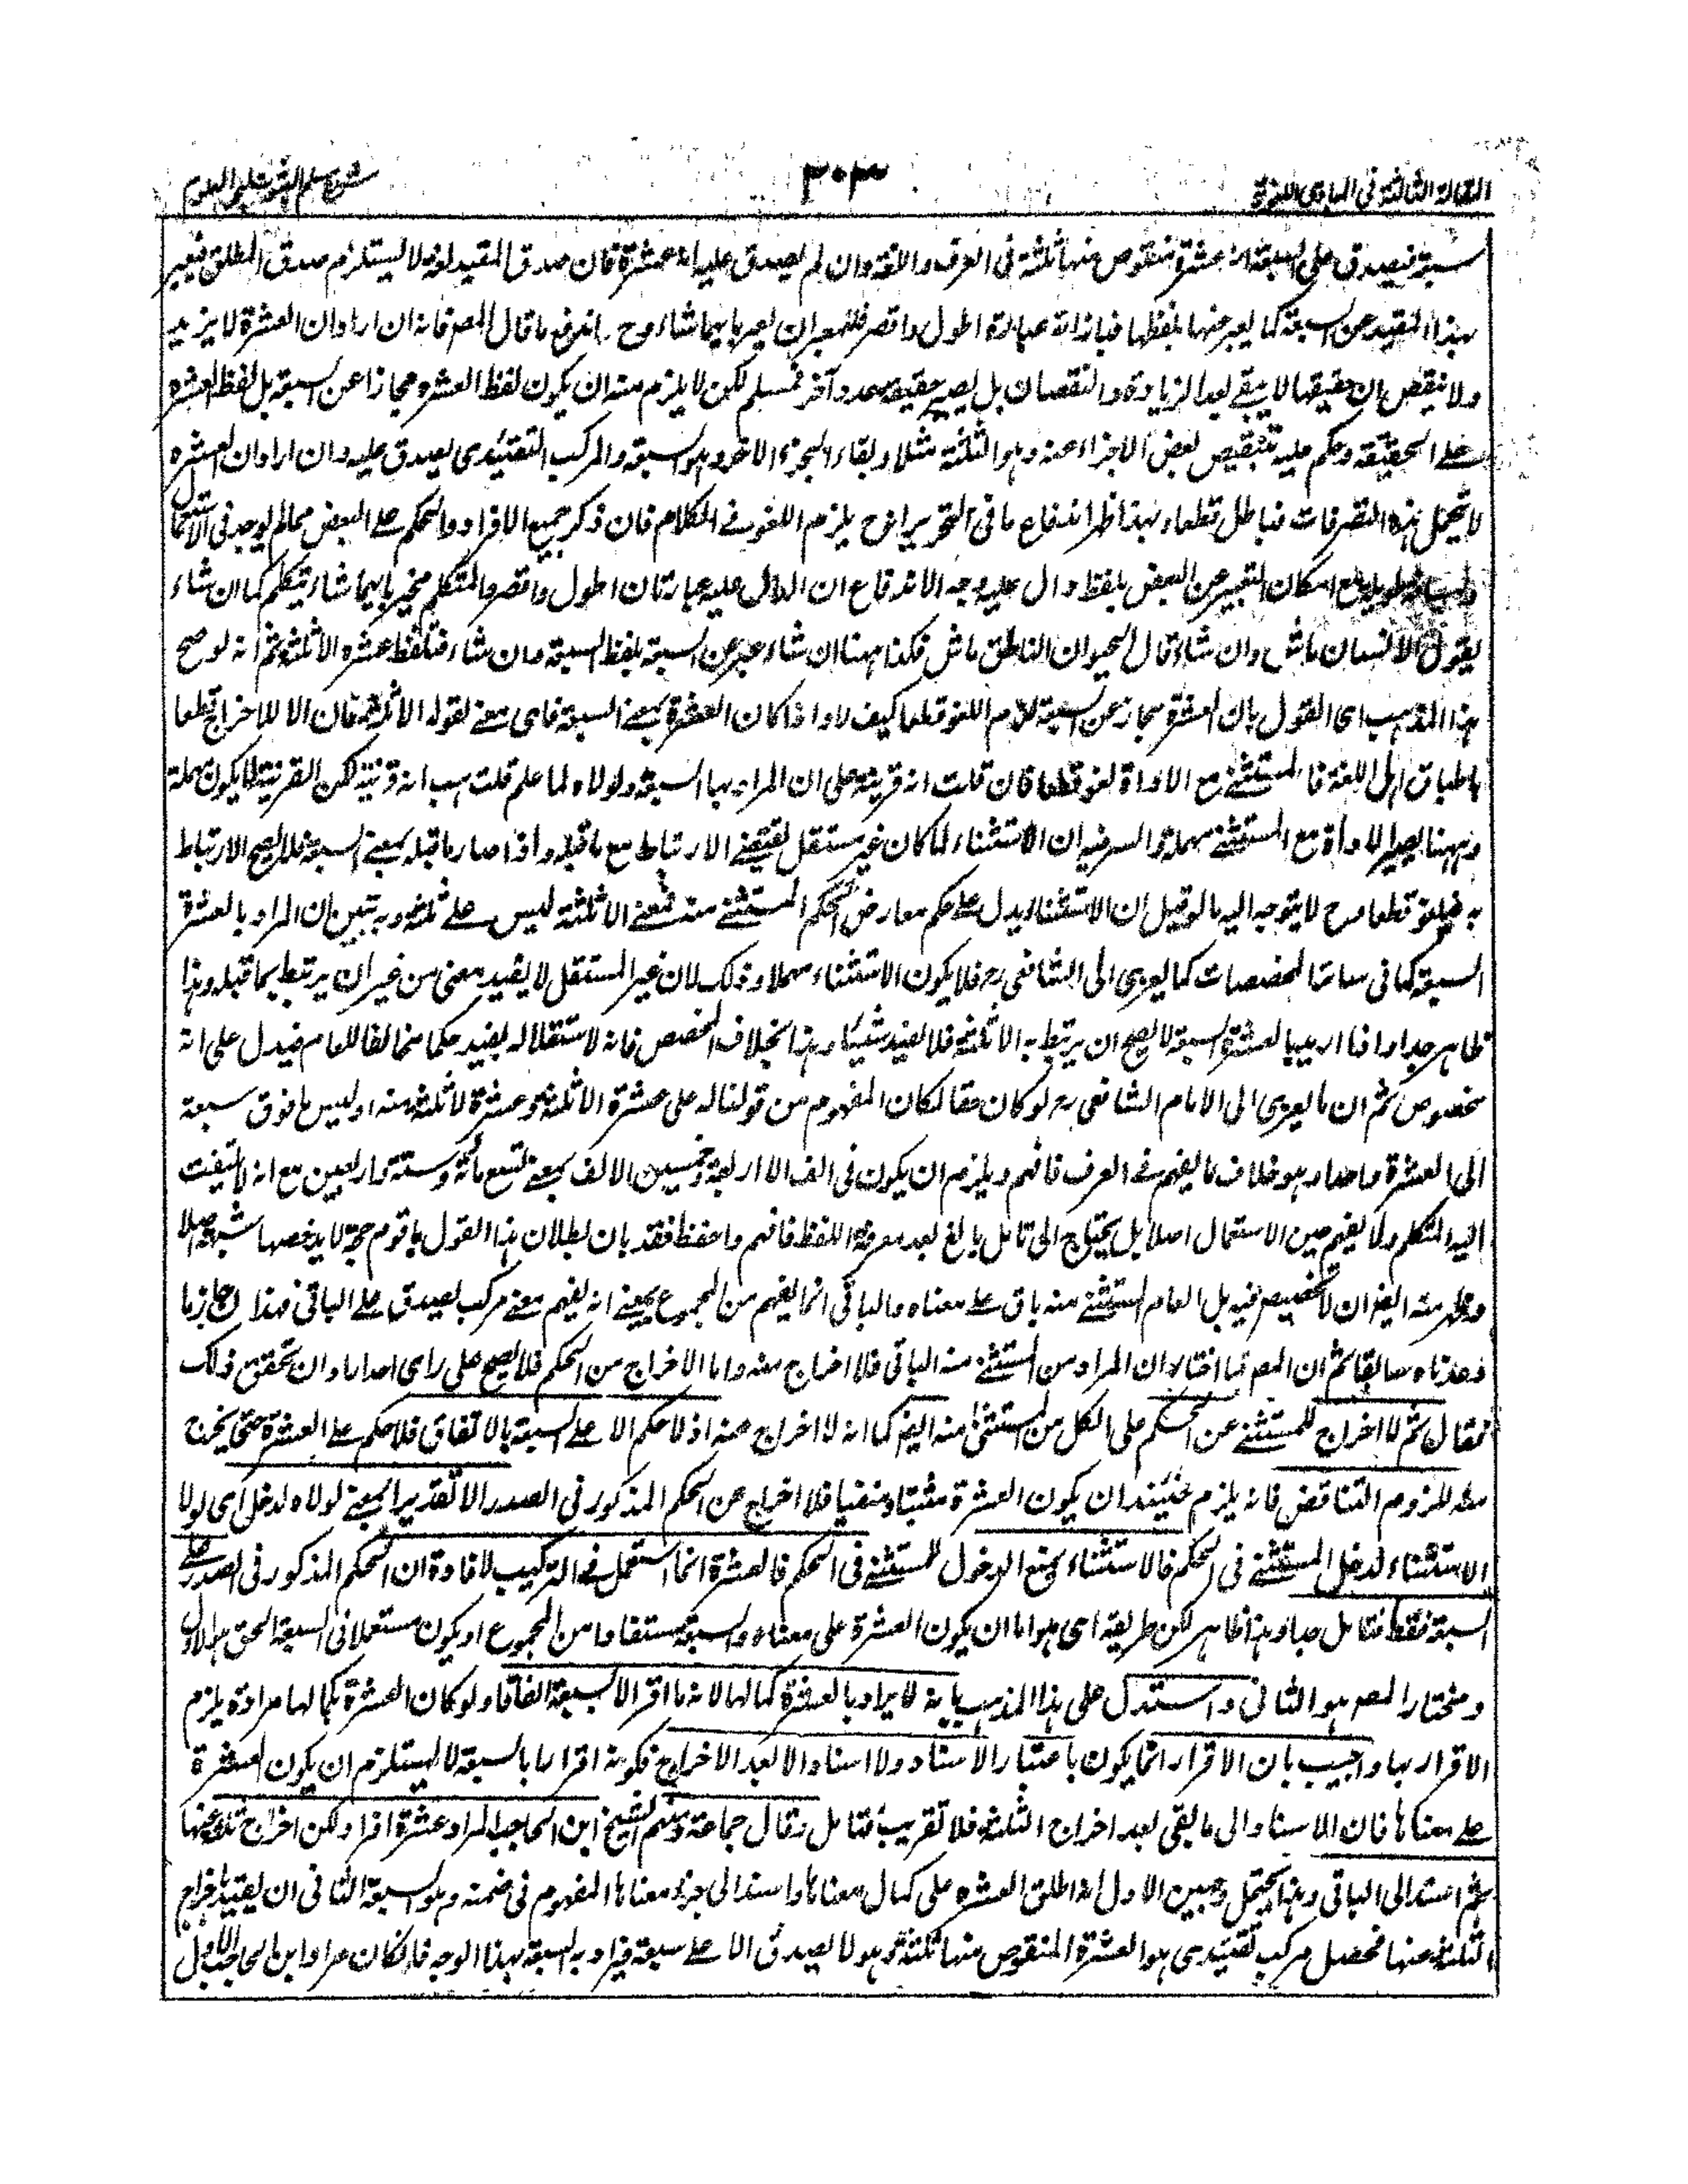 المقالة الثالثة فى المبادى اللغوية
٣٠٣
شرح مسلم الثبوت لبحر العلوم
سبعة فيصدق على السبعة انه عشرة منقوص منها ثلثة فى العرف واللغة وان لم يصدق عليه انه عشرة فان صدق المقيد لغة لا يستلزم صدق المطلق فيعبر
بهذا المقيد عن السبعة كما يعبر عنها بلفظها فبازائه عبارة اطول واقصر فللمعبر ان يعبر بايهما شاء وح اندفع ما قال المصـ فانه ان اراد ان العشرة لا يزيد
ولا ينقص ان حقيقتها لا يبقى بعد الزيادة والنقصان بل يصير حقيقة عدد آخر فمسلم لكن لا يلزم منه ان يكون لفظ العشرة مجازا عن السبعة بل لفظ العشرة
على الحقيقة وحكم عليه بتنقيص بعض الاجزاء عنه وهو الثلثة مثلا وبقاء الجزء الاخر وهو السبعة والمركب التقئيدى يصدق عليه وان اراد ان العشرة
لا تحتمل هذه التصرفات فباطل قطعا وبهذا ظهر اندفاع ما فى التحرير انه ح يلزم اللغو فى الكلام فان ذكر جميع الافراد والحكم على البعض مما لم يوجد فى الاستعمال
مع امكان التعبير عن البعض بلفظ دال عليه وجه الاندفاع ان الدال عليه عبارتان اطول واقصر والمتكلم مخير بايهما شاء يتكلم كما ان شاء
يقول الانسان ماش وان شاء قال الحيوان الناطق ماش فكذا ههنا ان شاء عبر عن السبعة بلفظ السبعة وان شاء فتلفظ عشرة الا ثلثة ثم انه لو صح
هذا المذهب اى القول بان العشرة مجاز عن السبعة للزم اللغو قطعا كيف لا واذا كان العشرة بمعنى السبعة فاى معنى لقوله الا ثلثة فان الا للاخراج قطعا
باطباق اهل اللغة فالمستثنى مع الاداة لغو قطعا فان قلت انه قرينة على ان المراد بها السبعة ولولاه لما علم قلت هب انه قرينة لكن القرينة لا يكون مهملة
وههنا يصير الاداة مع المستثنى مهملة والسر فيه ان الاستثناء لما كان غير مستقل يقتضى الارتباط مع ما قبله واذا صار ما قبله بمعنى السبعة فلا يصح الارتباط
به فيلغو قطعا وح لا يتوجه اليه ما لو قيل ان الاستثناء يدل على حكم معارض لحكم المستثنى منه فمعنى الا ثلثة ليس على ثلثة وبه تبين ان المراد بالعشرة
السبعة كما فى سائر المخصصات كما يعزى الى الشافعى رح فلا يكون الاستثناء مهملا وذلك لان غير المستقل لا يفيد معنى من غير ان يرتبط بما قبله وهذا
ظاهر جدا واذا اريد بالعشرة السبعة لا يصح ان يرتبط به الا ثلثة فلا يفيد شيئا وهذا بخلاف المخصص فانه لاستقلاله يفيد حكما مخالفا للعام فيدل على انه
مخصوص ثم ان ما يعزى الى الامام الشافعى رح لو كان حقا لكان المفهوم من قولنا له على عشرة الا ثلثة هو عشرة لا ثلثة منه او ليس ما فوق سبعة
الى العشرة واحدا وهو خلاف ما يفهم فى العرف فافهم ويلزم ان يكون فى الف الا اربعة وخمسين الالف بمعنى تسع مائة وستة واربعين مع انه لا يلتفت
اليه المتكلم ولا يفهم حين الاستعمال اصلا بل يحتاج الى تامل بالغ بعد معرفة اللفظ فافهم واحفظ فقد بان بطلان هذا القول باقوم حجة لا يدخصها شبهة اصلا
وظهر منه ايضا ان لا تخصيص فيه بل العام المستثنى منه باق على معناه والباقى انما يفهم من المجموع بمعنى انه يفهم معنى مركب يصدق على الباقى فهذا انجاز ما
وعدناه سابقا ثم ان المصـ لما اختار ان المراد من المستثنى منه الباقى فلا اخراج منه واما الاخراج من الحكم فلا يصح على راى احد اراد ان تحقق ذلك
فقال ثم لا اخراج للمستثنى عن الحكم على الكل من المستثنى منه ايضا كما انه لا اخراج عنه اذ لا حكم الا على السبعة بالاتفاق فلا حكم على العشرة حتى يخرج
منه للزوم التناقض فانه يلزم حينئذ ان يكون العشرة مثبتا ومنفيا فلا اخراج عن الحكم المذكور فى الصدر الا تقديرا بمعنى لولاه لدخل اى لولا
الاستثناء لدخل المستثنى فى الحكم فالاستثناء يمنع الدخول للمستثنى فى الحكم فالعشرة انما استعمل فى التركيب لافادة ان الحكم المذكور فى الصدر على
السبعة فقط فتامل جدا وهذا ظاهر لكن طريقه اى هو اما ان يكون العشرة على معناه والسبعة مستفادا من المجموع او يكون مستعملا فى السبعة الحق هو الاول
ومختار المصـ هو الثانى واستدل على هذا المذهب بانه لا يراد بالعشرة كمالها لانه ما اقر الا بسبعة اتفاقا ولو كان العشرة بكمالها مرادة يلزم
الاقرار بها واجيب بان الاقرار انما يكون باعتبار الاسناد ولا اسناد الا بعد الاخراج فكونه اقرارا بالسبعة لا يستلزم ان يكون العشرة
على معناها فان الاسناد الى ما بقى بعد اخراج الثلثة فلا تقريب فتامل وقال جماعة ومنهم الشيخ ابن الحاجب المراد عشرة افراد لكن اخراج ثلثة عنها
ثم اسند الى الباقى وهذا يحتمل وجهين الاول انه اطلق العشرة على كمال معناها واسند الى جزء معناها المفهوم فى ضمنه وهو السبعة الثانى ان يقيد باخراج
الثلثة عنها فحصل مركب تقئيدى هو العشرة المنقوص منها ثلثة وهو لا يصدق الا على سبعة فيراد به السبعة بهذا الوجه فان كان مراد ابن الحاجب الاول